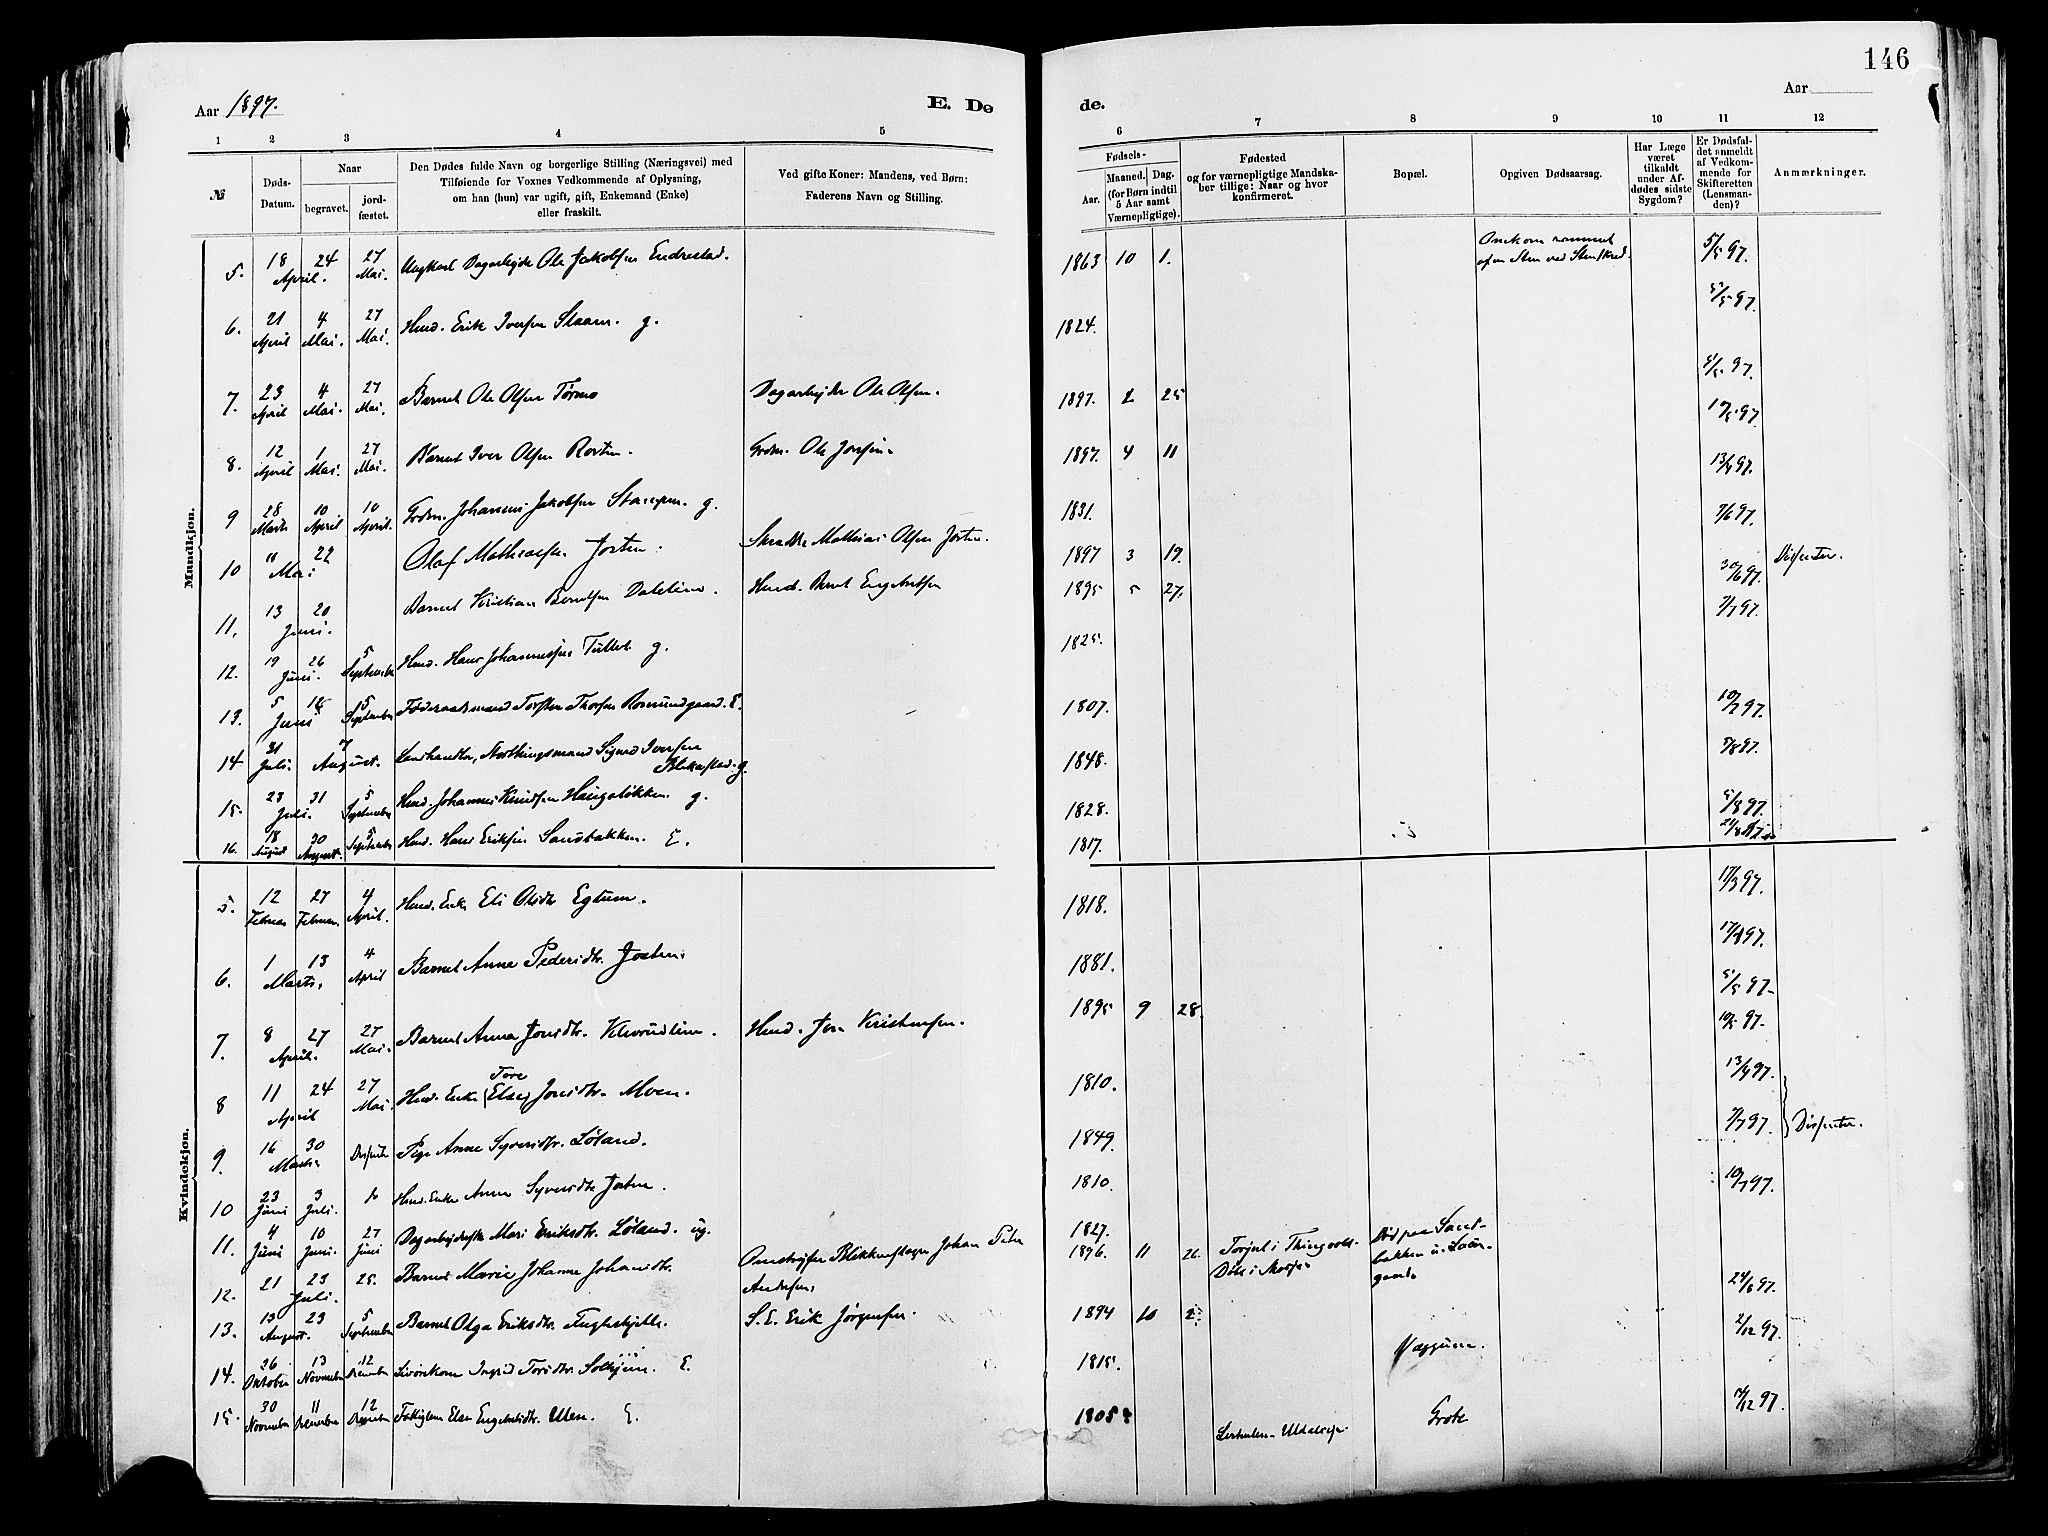 146
Aar 1897.
E. Dø
de.
Aar
1 2 3 4 5 6 7 8 9 10 11 12
№
Døds-Datum.
Naar
begravet.
jord-fæstet.
Den Dødes fulde Navn og borgerlige Stilling (Næringsvei) med
Tilføiende for Voxnes Vedkommende af Oplysning,
om han (hun) var ugift, gift, Enkemand (Enke)
eller fraskilt.
Ved gifte Koner: Mandens, ved Børn:
Faderens Navn og Stilling.
Fødsels-
Aar.
Maaned. Dag.
(for Børn indtil
5 Aar samt
Værnepligtige).
Fødested
og for værnepligtige Mandska-
ber tillige: Naar og hvor
konfirmeret.
Bopæl.
Opgiven Dødsaarsag.
Har Læge
været
tilkaldt
under Af-
dødes sidste
Sygdom?
Er Dødsfal-
det anmeldt
af Vedkom-
mende for
Skifteretten
(Lensman-
den)?
Anmærkninger.
Mandkjøn.
5. 18 24 April. 27 Mai. Ungkarl Dagarbejder Ole Jakobsen Endrestad. 1863 10 1. af en Sten ved Stenskred. 5/5 97.
6. 21 April 4 Mai. 27 Mai. Husd. Erik Iversen Staam. g. 1824. 5/5 97.
7. 23 April 4 Mai. 27 Mai. Barnet Ole Olsen Dagarbejder Ole Olsen. 1897. 2 25 5/5 97.
10/5 97.
8. 12 April 1 Mai. 27 Mai. Barnet Iver Olsen Rosten. Grdm. Ole 1897. 4 11 13/4 97.
9 28 Marts 10 April 10 April. Grdm. Johannes Jakobsen Stampen. g. 1831. 7/6 97.
10 11 22 Mai Olaf Mathiasen Josten. Skrædder Mathias Olsen Josten. 1897 3 19. 30/6 97. Dissenter.
11. 13 20 Juni. Barnet Kristian Berntsen Dalelien. Husd. Bernt Engebretsen 1895 5 27. 7/7 97.
12. 19 26 Juni. 5 September Husd. Hans Johannessen g. 1825.
13. 5 Juni 5 September Føderaadsmand Torsten Thorsen Romundgaard. E. 1807. 10/7 97.
14 31 Juli. 7 August. Landhandler, Storthingsmand Sigurd Iversen
Blekastad. g. 1848. 5/8 97.
15. 23 31 Juli. 5 September Husd. Johannes Knudsen Haugstøkken. g. 1828. 5/8 97.
16. 18 August 30 August. 5 September Husd. Hans Eriksen Sandbakken. E. 1817.
Kvindekjøn.
5. 12 Februar 27 Februar. 4 April. Husd. Enke Eli Olsdtr. Egtum. 1818. 17/3 97.
6. 1 13 Marts. 4 April Barnet Anne Pedersdtr. Josten. 1881. 17/4 97.
7. 8 27 April. 27 Mai. Barnet Anna Jonsdtr. Klevrudlien. Husd. Jon Kristensen. 1895 9 28. 5/5 97.
10/5 97.
8 11 24 April 27 Mai. Husd. Enke Tore (Else) Jonsdtr. Moen. 1810. 13/4 97.
9. 16 30 Marts Dissenter Pige Anne Syversdtr. Løland. 1849. 7/7 97. Dissenter.
10 23 Juni 3 Juli. do Husd. Enke Anne Syversdtr. Josten. 1810. 10/7 97.
11. 4 Juni 10 Juni. 27 Juni Dagarbejderske Mari Eriksdtr. Løland. ug. 1827.
12. 21 23 Juli. 25. Barnet Marie Johanne Johansdtr. Omstrejfer Blikkenslager Johan Peter
Andersen. 1896. 11 Torjul i Thingvold Død paa Sand-
bakken u.
gaard. 24/8 97.
13. 13 23 August. 5 September Barnet Olga Eriksdtr. S. E. Erik Jørgensen. 1894 10 2. 2/12 97.
14. 26 Oktober 13 November 12 December Ingrid Torsdtr. Solhjem. E. 1815.
15. 30 November 11 December 12 December Else Engebretsdtr. Ulen. E. 1805. 97.